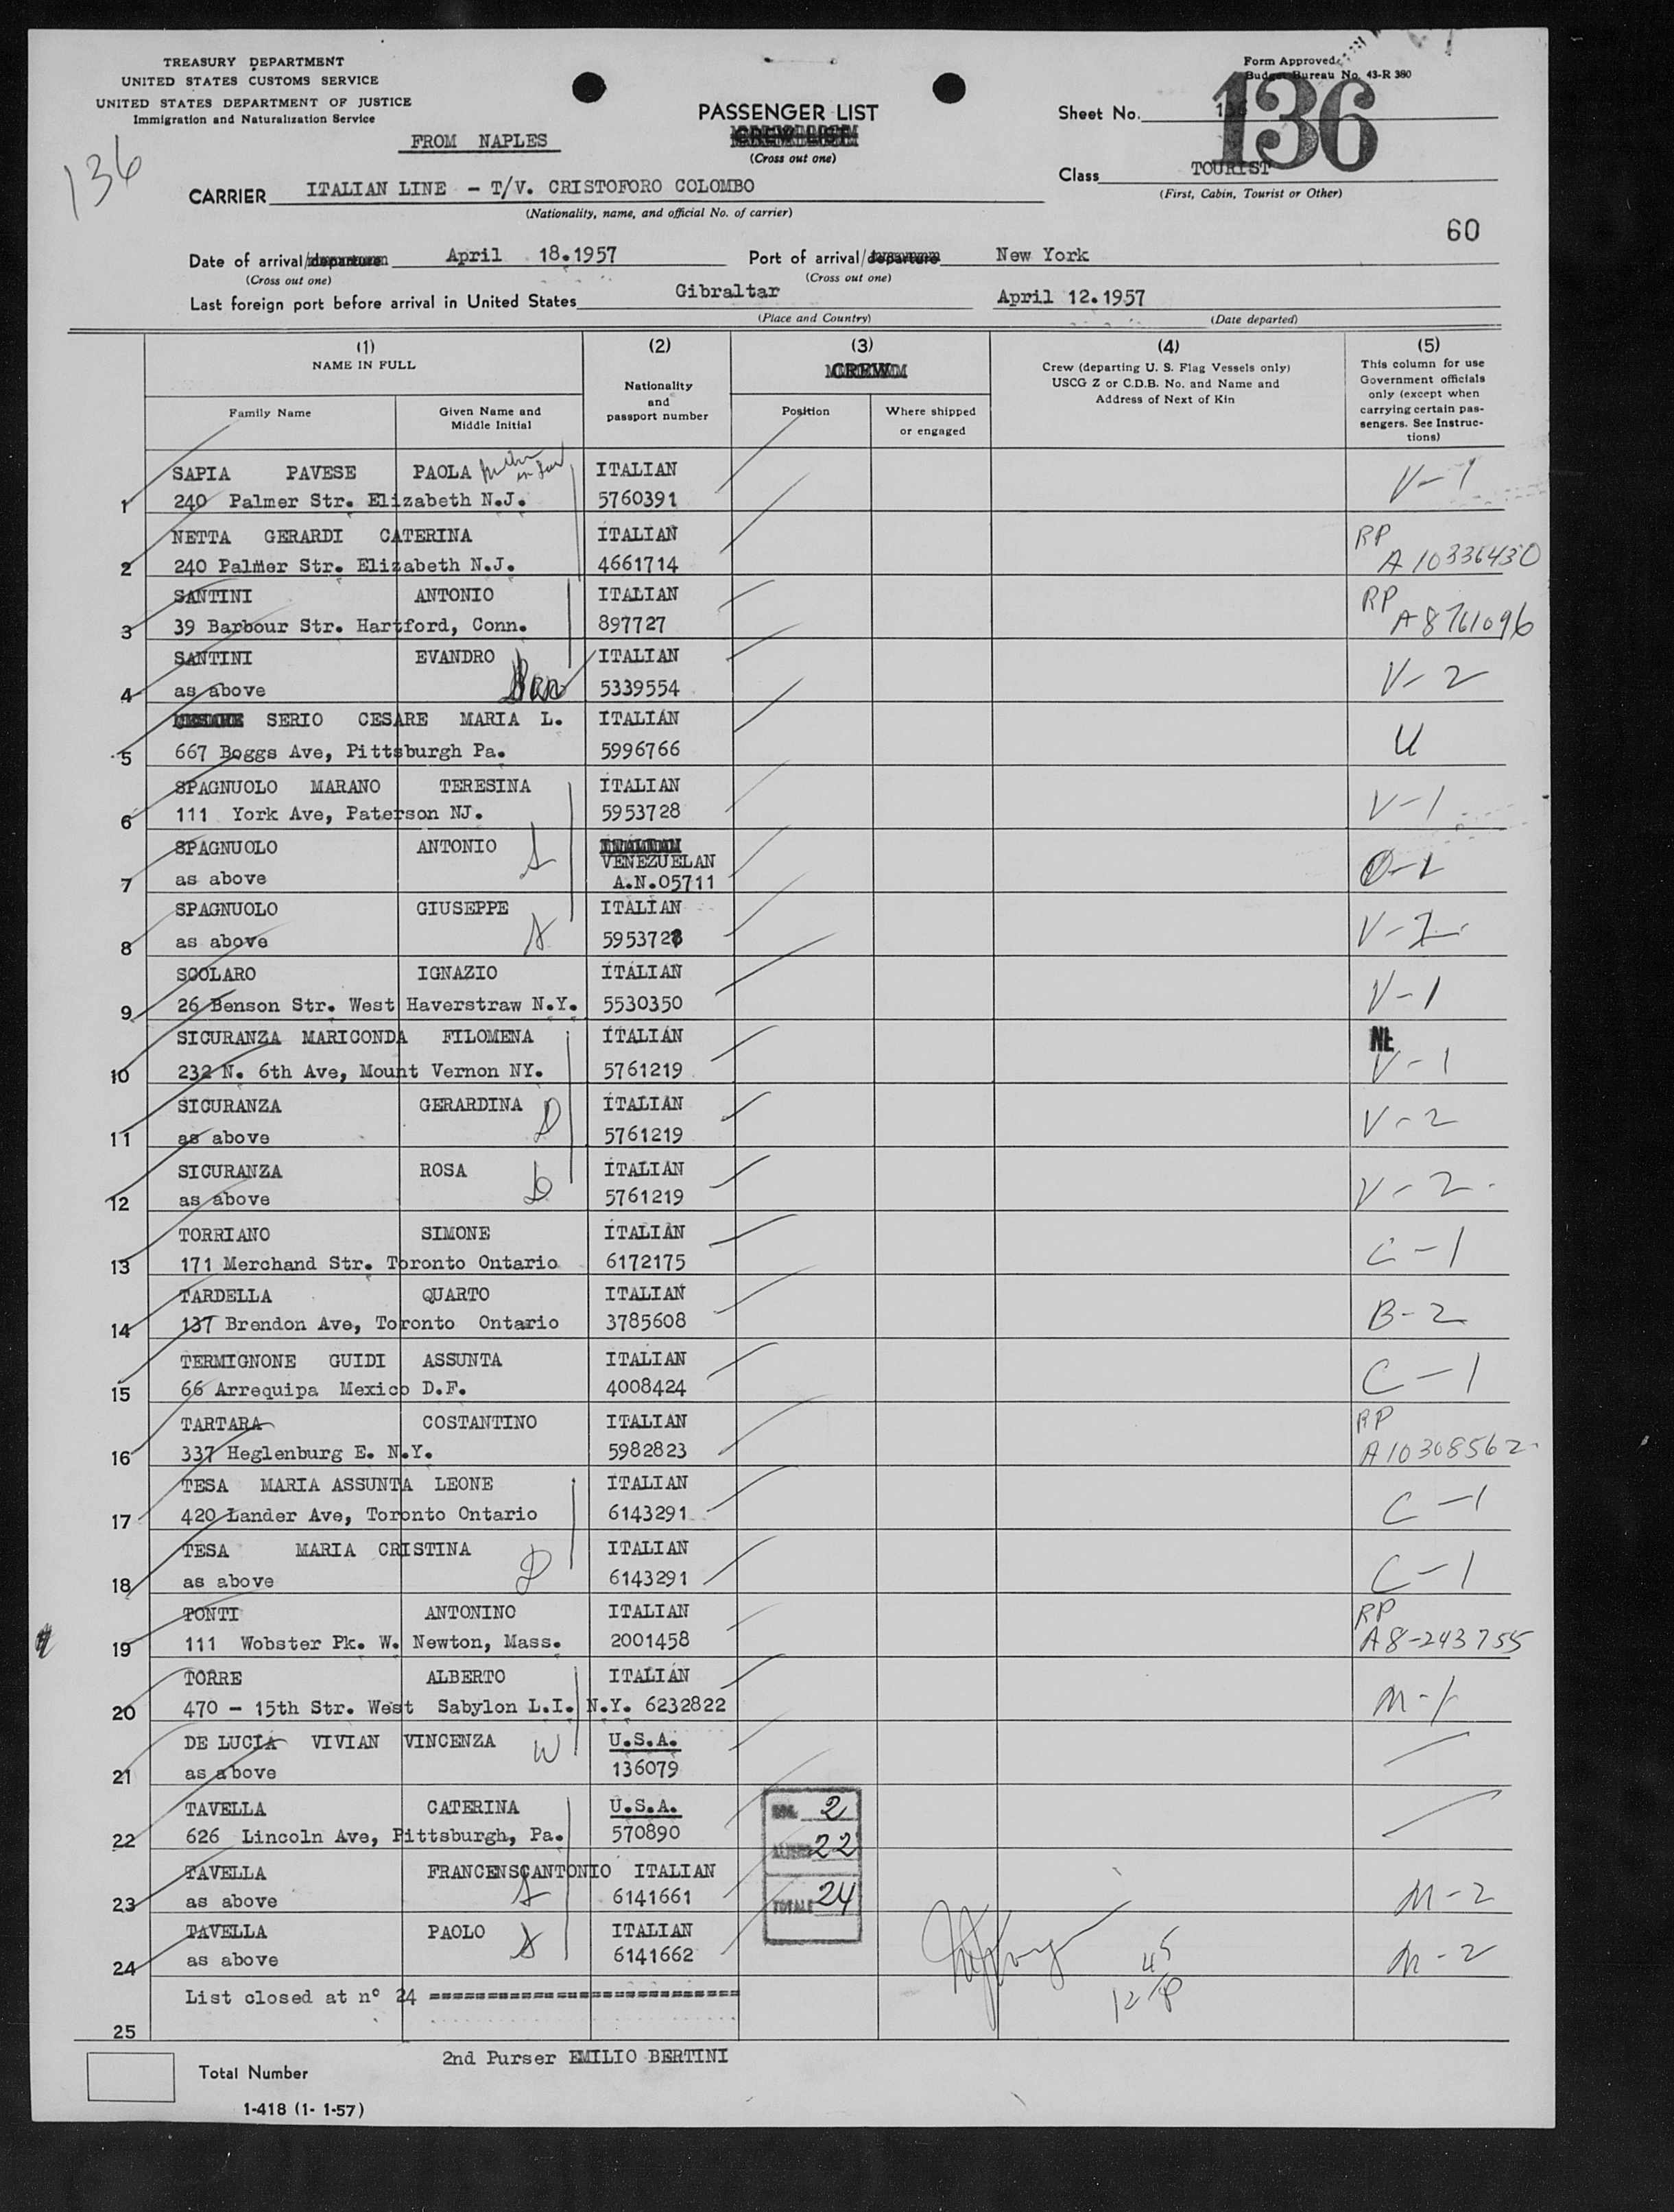 TREASURY DEPARTMENT
UNITED STATES CUSTOMS SERVICE
UNITED STATES DEPARTMENT OF JUSTICE
Immigration and Naturalization Service
FROM NAPLES
136
PASSENGER LIST
CREW LIST
(Cross out one)
Form Approved
Budget Bureau No. 43-R 380
Sheet No. 136
136
Class TOURIST
(First, Cabin, Tourist or Other)
CARRIER ITALIAN LINE - T/V. CRISTOFORO COLOMBO
(Nationality, name, and official No. of carrier)
60
Date of arrival/departure April 18.1957 Port of arrival/departure New York
(Cross out one) (Cross out one)
Last foreign port before arrival in United States Gibraltar April 12.1957
(Place and Country) (Date departed)
(1) (2) (3) (4) (5)
NAME IN FULL
Family Name
Given Name and
Middle Initial
Nationality
and
passport number
CREW
Position
Where shipped
or engaged
Crew (departing U. S. Flag Vessels only)
USCG Z or C.D.B. No. and Name and
Address of Next of Kin
This column for use
Government officials
only (except when
carrying certain pas-
sengers. See Instruc-
tions)
SAPIA PAVESE PAOLA in law ITALIAN V-1
1 240 Palmer Str. Elizabeth N.J. 5760391
NETTA GERARDI CATERINA ITALIAN RP
2 240 Palmer Str. Elizabeth N.J. 4661714 A 10336430
SANTINI ANTONIO ITALIAN RP
3 39 Barbour Str. Hartford, Conn. 897727 A 8761096
SANTINI EVANDRO ITALIAN V-2
4 as above 5339554
SERIO CESARE MARIA L. ITALIAN U
5 667 Boggs Ave, Pittsburgh Pa. 5996766
SPAGNUOLO MARANO TERESINA ITALIAN V-1
6 111 York Ave, Paterson NJ. 5953728
SPAGNUOLO ANTONIO S ITALIAN
VENEZUELAN
7 as above A.N.05711
SPAGNUOLO GIUSEPPE S ITALIAN
8 as above 5953728
SCOLARO IGNAZIO ITALIAN V-1
9 26 Benson Str. West Haverstraw N.Y. 5530350
SICURANZA MARICONDA FILOMENA ITALIAN
10 232 N. 6th Ave, Mount Vernon NY. 5761219 V-1
SICURANZA GERARDINA D ITALIAN V-2
11 as above 5761219
SICURANZA ROSA D ITALIAN V-2
12 as above 5761219
TORRIANO SIMONE ITALIAN C-1
13 171 Merchand Str. Toronto Ontario 6172175
TARDELLA QUARTO ITALIAN B-2
14 137 Brendon Ave, Toronto Ontario 3785608
TERMIGNONE GUIDI ASSUNTA ITALIAN C-1
15 66 Arrequipa Mexico D.F. 4008424
TARTARA COSTANTINO ITALIAN RP
16 337 Heglenburg E. N.Y. 5982823 A10308562
TESA MARIA ASSUNTA LEONE ITALIAN C-1
17 420 Lander Ave, Toronto Ontario 6143291
TESA MARIA CRISTINA D ITALIAN C-1
18 as above 6143291
TONTI ANTONINO ITALIAN RP
19 111 Wobster Pk. W. Newton, Mass. 2001458 A8-243755
TORRE ALBERTO ITALIAN M-1
20 470 - 15th Str. West Sabylon L.I. N.Y. 6232822
DE LUCIA VIVIAN VINCENZA W U.S.A.
21 as above 136079
TAVELLA CATERINA U.S.A. 2
22 626 Lincoln Ave, Pittsburgh, Pa. 570890 ALIENS 22
TAVELLA FRANCENSCANTONIO ITALIAN
23 as above S 6141661 TOTALE 24 M-2
TAVELLA PAOLO S ITALIAN
24 as above 6141662 M-2
List closed at n° 24 ==========================
25
45
12/P
Total Number
2nd Purser EMILIO BERTINI
1-418 (1- 1-57)